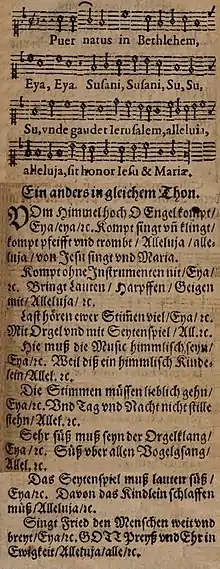 Puer natus in Bethlehem,
Eya, Eya. Susani, Susani, Su, Su,
Su, vnde gaudet Ierusalem, alleluia,
alleluja, sit honor Iesu & Mariæ.
Ein anders in gleichem Thon.
VOm Himmel hoch O Engel kompt/
Eya/eya/ꝛc. Kompt singt vñ klingt/
kompt pfeifft vnd trombt/ Alleluja/alle/
luja/von Jesu singt vnd Maria.
Kompt ohne Instrumenten nit/Eya/
ꝛc. Bringt Lauten/ Harpffen/ Geigen
mit/Alleluja/ꝛc.
Last hören ewer Stim̃en viel/Eya/ꝛc.
Mit Orgel vnd mit Seytenspiel/All.ꝛc.
Hie muß die Music himmlisch seyn/
Eya/ꝛc. Weil diß ein himmlisch Kinde-
lein/Allel.ꝛc.
Die Stimmen müssen lieblich gehn/
Eya/ꝛc. Vnd Tag vnd Nacht nicht stille
stehn/Allel.ꝛc.
Sehr süß muß seyn der Orgelklang/
Eya/ꝛc. Süß vber allen Vogelgsang/
Allel.ꝛc.
Das Seytenspiel muß lauten süß/
Eya/ꝛc. Davon das Kindlein schlaffen
müß/Alleluja/ꝛc.
Singt Fried den Menschen weit vnd
breyt/Eya/ꝛc. GOTT Preyß vnd Ehr in
Ewigkeit/Alleluja/alle/ꝛc.